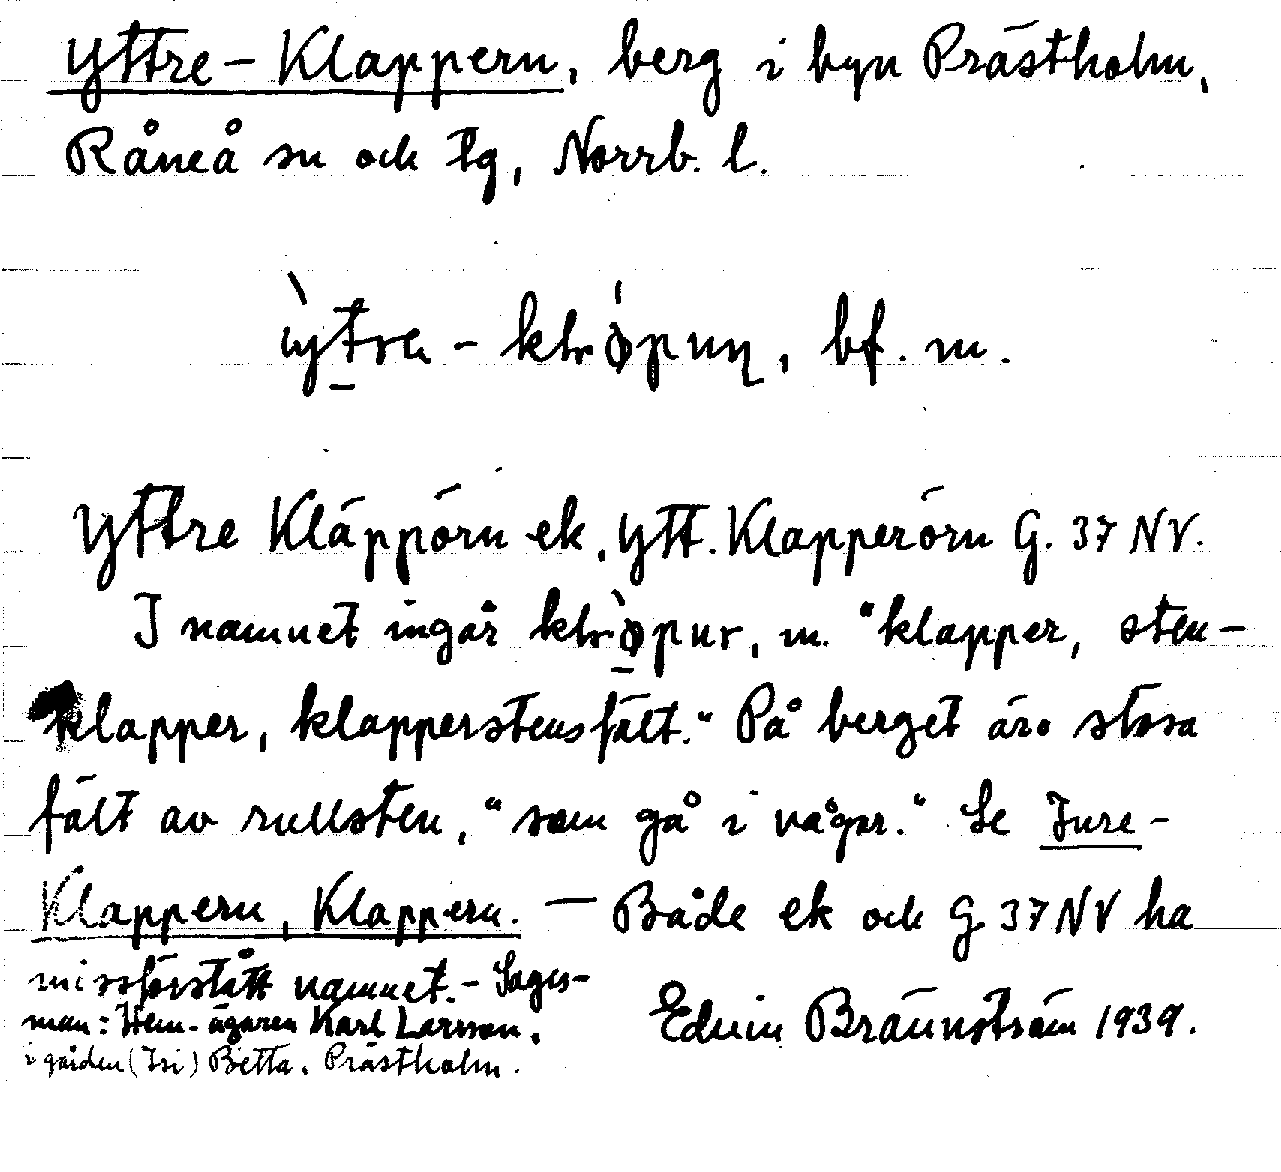 Yttre-Klappern, berg i byn Prästholm,
Råneå sn och tg, Norrb. l.
bf. m.
Yttre Kläppörn ek, Ytt. Klapperörn G. 37 NV.
I namnet ingår m. "klapper, sten-
klapper, klapperstensfält." På berget äro stora
fält av rullsten, "som gå i vågor." Se Jure-
Klappern, Klappern. — Både ek och G 37 NV ha
missförstått namnet. - Sages-
man: Hem.-ägaren Karl Larsson,
i gården Betta, Prästholm.
Edvin Brännström 1939.